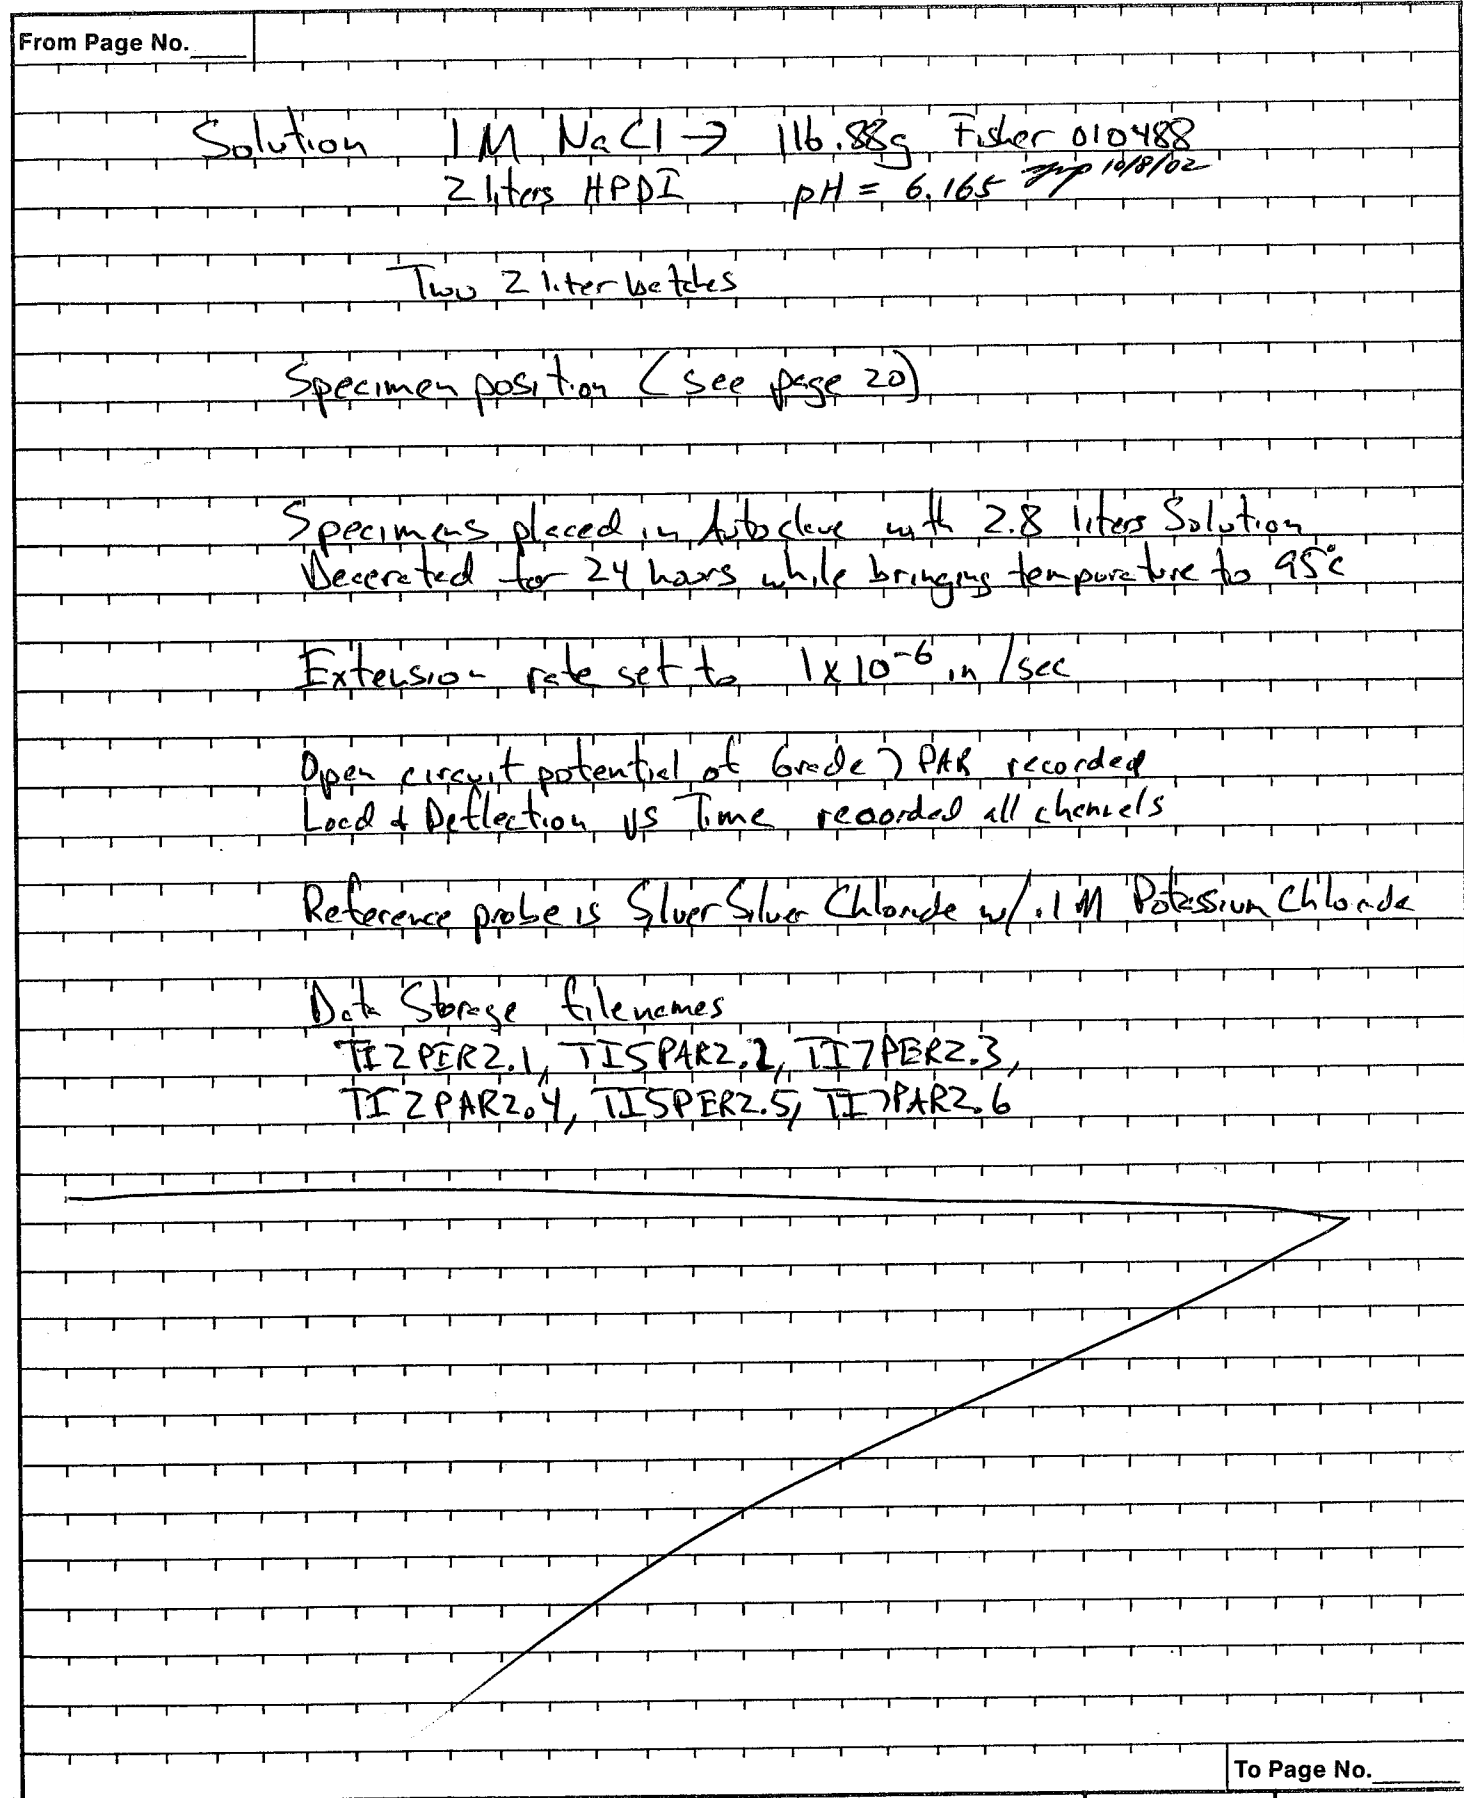 From Page No.
Solution 1M NaCl → 116.88g Fisher 010488
2 liters HPDI pH = 6.165 10/8/02
Two 2 liter batches
Specimen position (see page 20)
Specimens placed in Autoclave with 2.8 liters Solution
Deaerated for 24 hours while bringing tempurature to 95°c
Extension rate set to 1x10⁻⁶ in/sec
Open circuit potential of Grade 7 PAR recorded
Load & Deflection vs Time recorded all channels
Reference probe is Silver Silver Chloride w/ .1M Potassium Chloride
Data Storage filenames
TI2PER2.1, TI5PAR2.2, TI7PER2.3,
TI2PAR2.4, TI5PER2.5, TI7PAR2.6
To Page No.